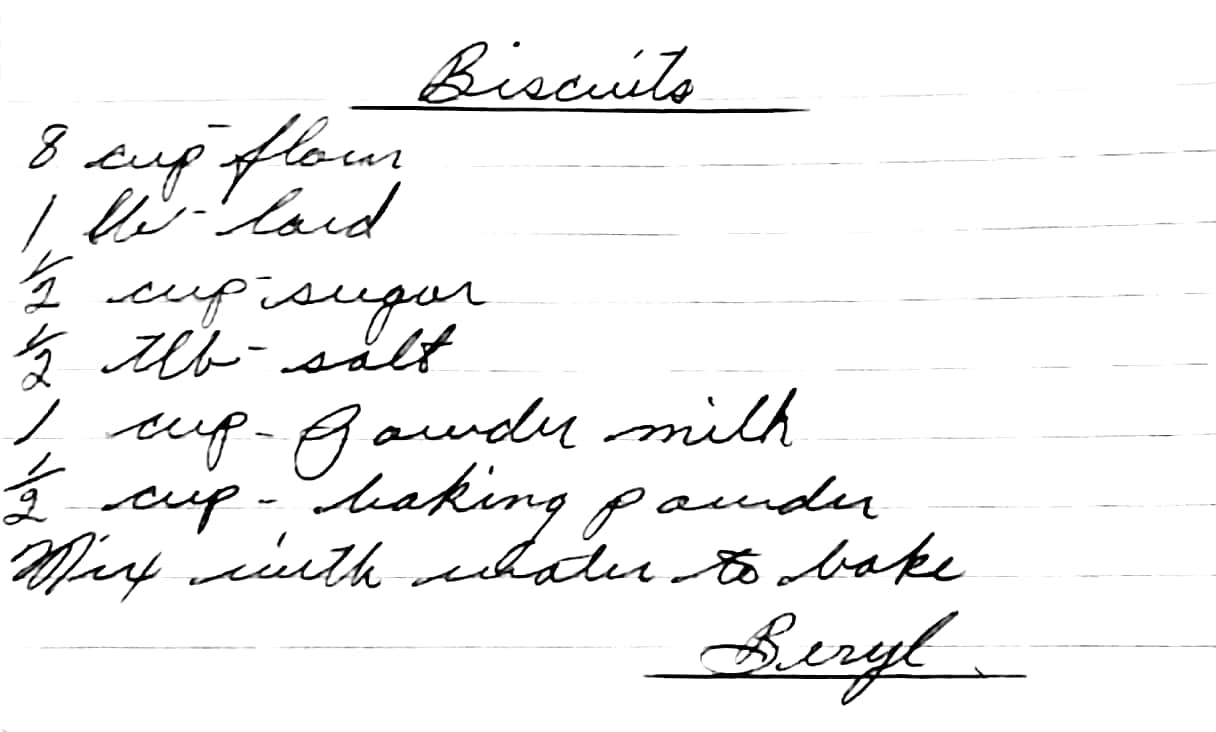 Biscuits
8 cup - flour
1 lb - lard
1/2 cup - sugar
1/2 tlb - salt
1 cup - powder milk
1/2 cup - baking powder
Mix with water to bake
Beryl